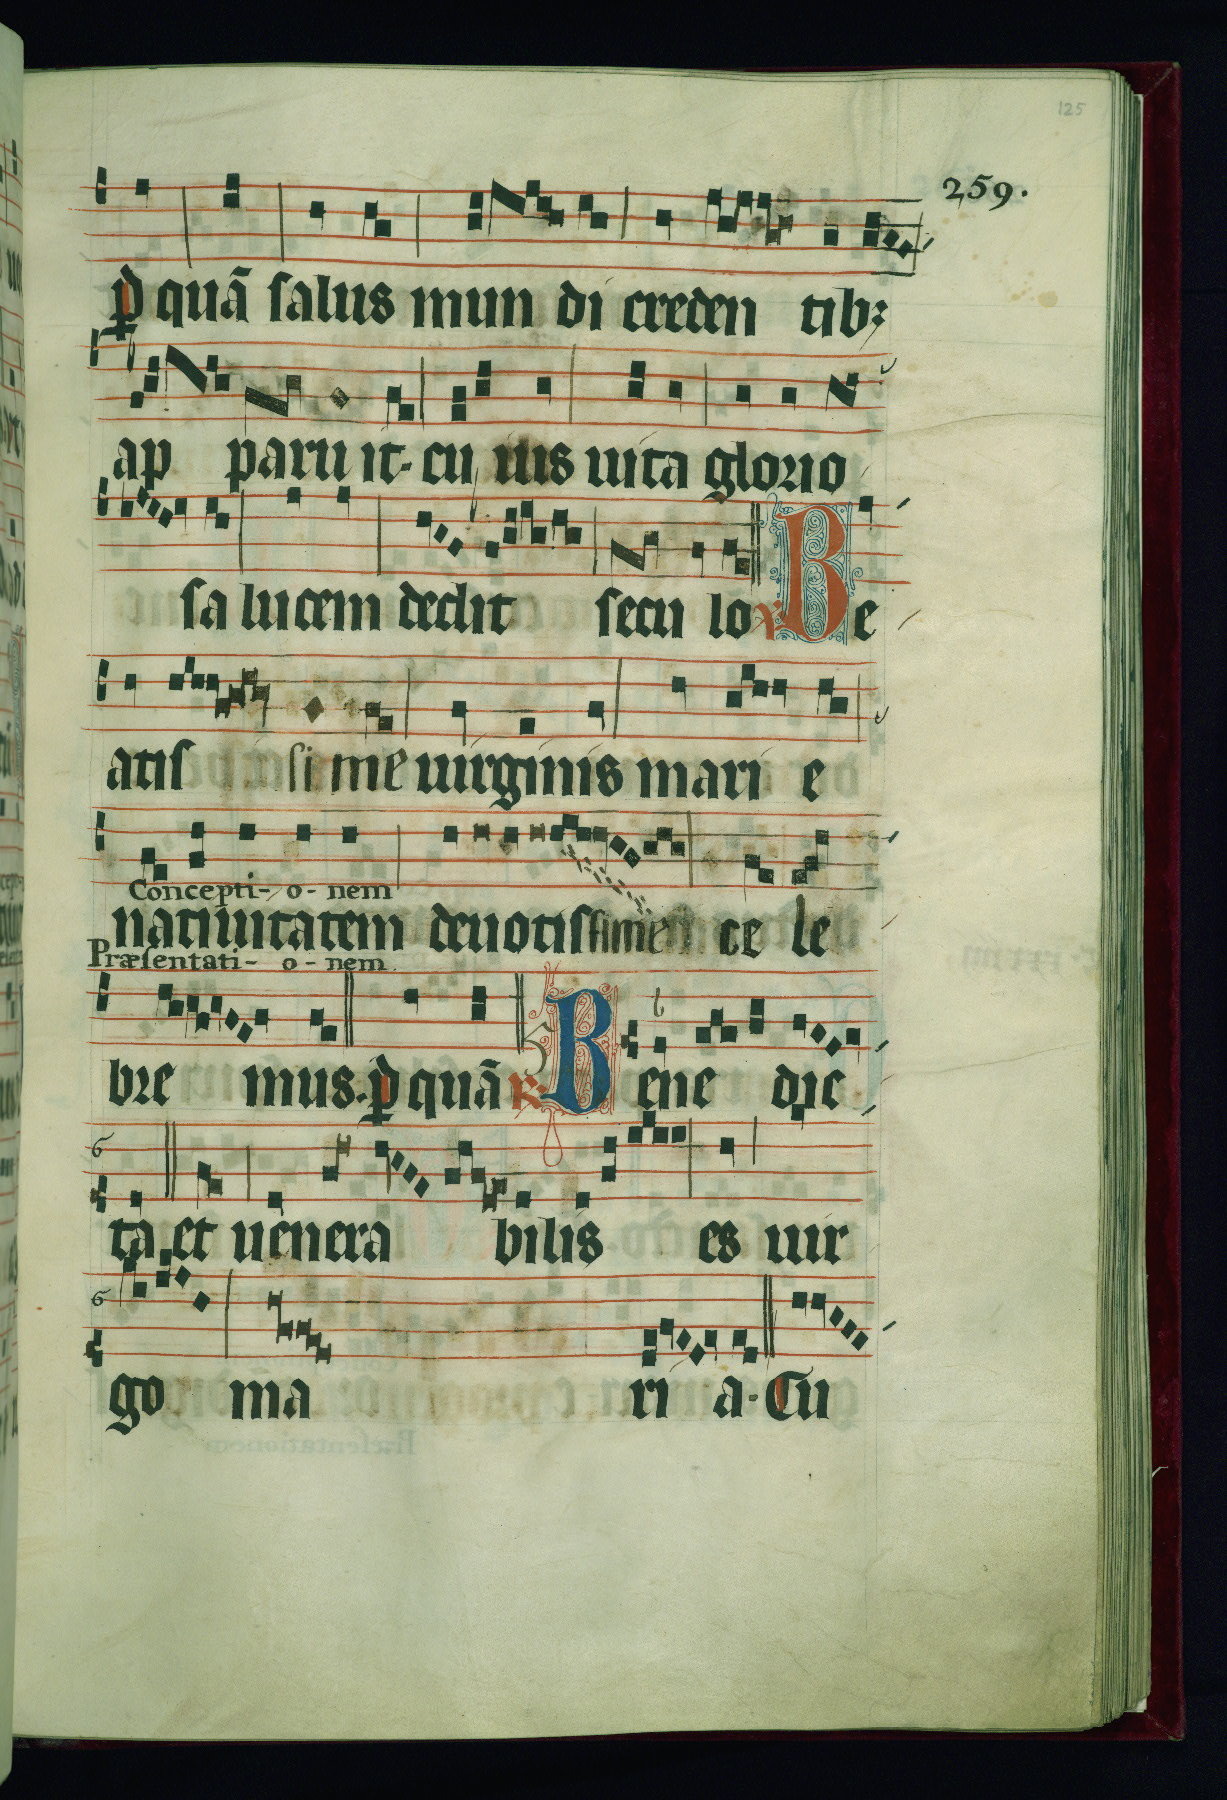 125
259.
p̱ quā salus mun di creden tibꝫ
ap paru it· cu ius uita glorio
sa lucem dedit secu lo Be
atis si me uirginis mari e
Concepti- o- nem
natiuitatem deuotissime ce le
Præsentati- o- nem
bre mus· p̱ quā ℟ Bene dic
ta et uenera bilis es uir
go ma ri a· Cu